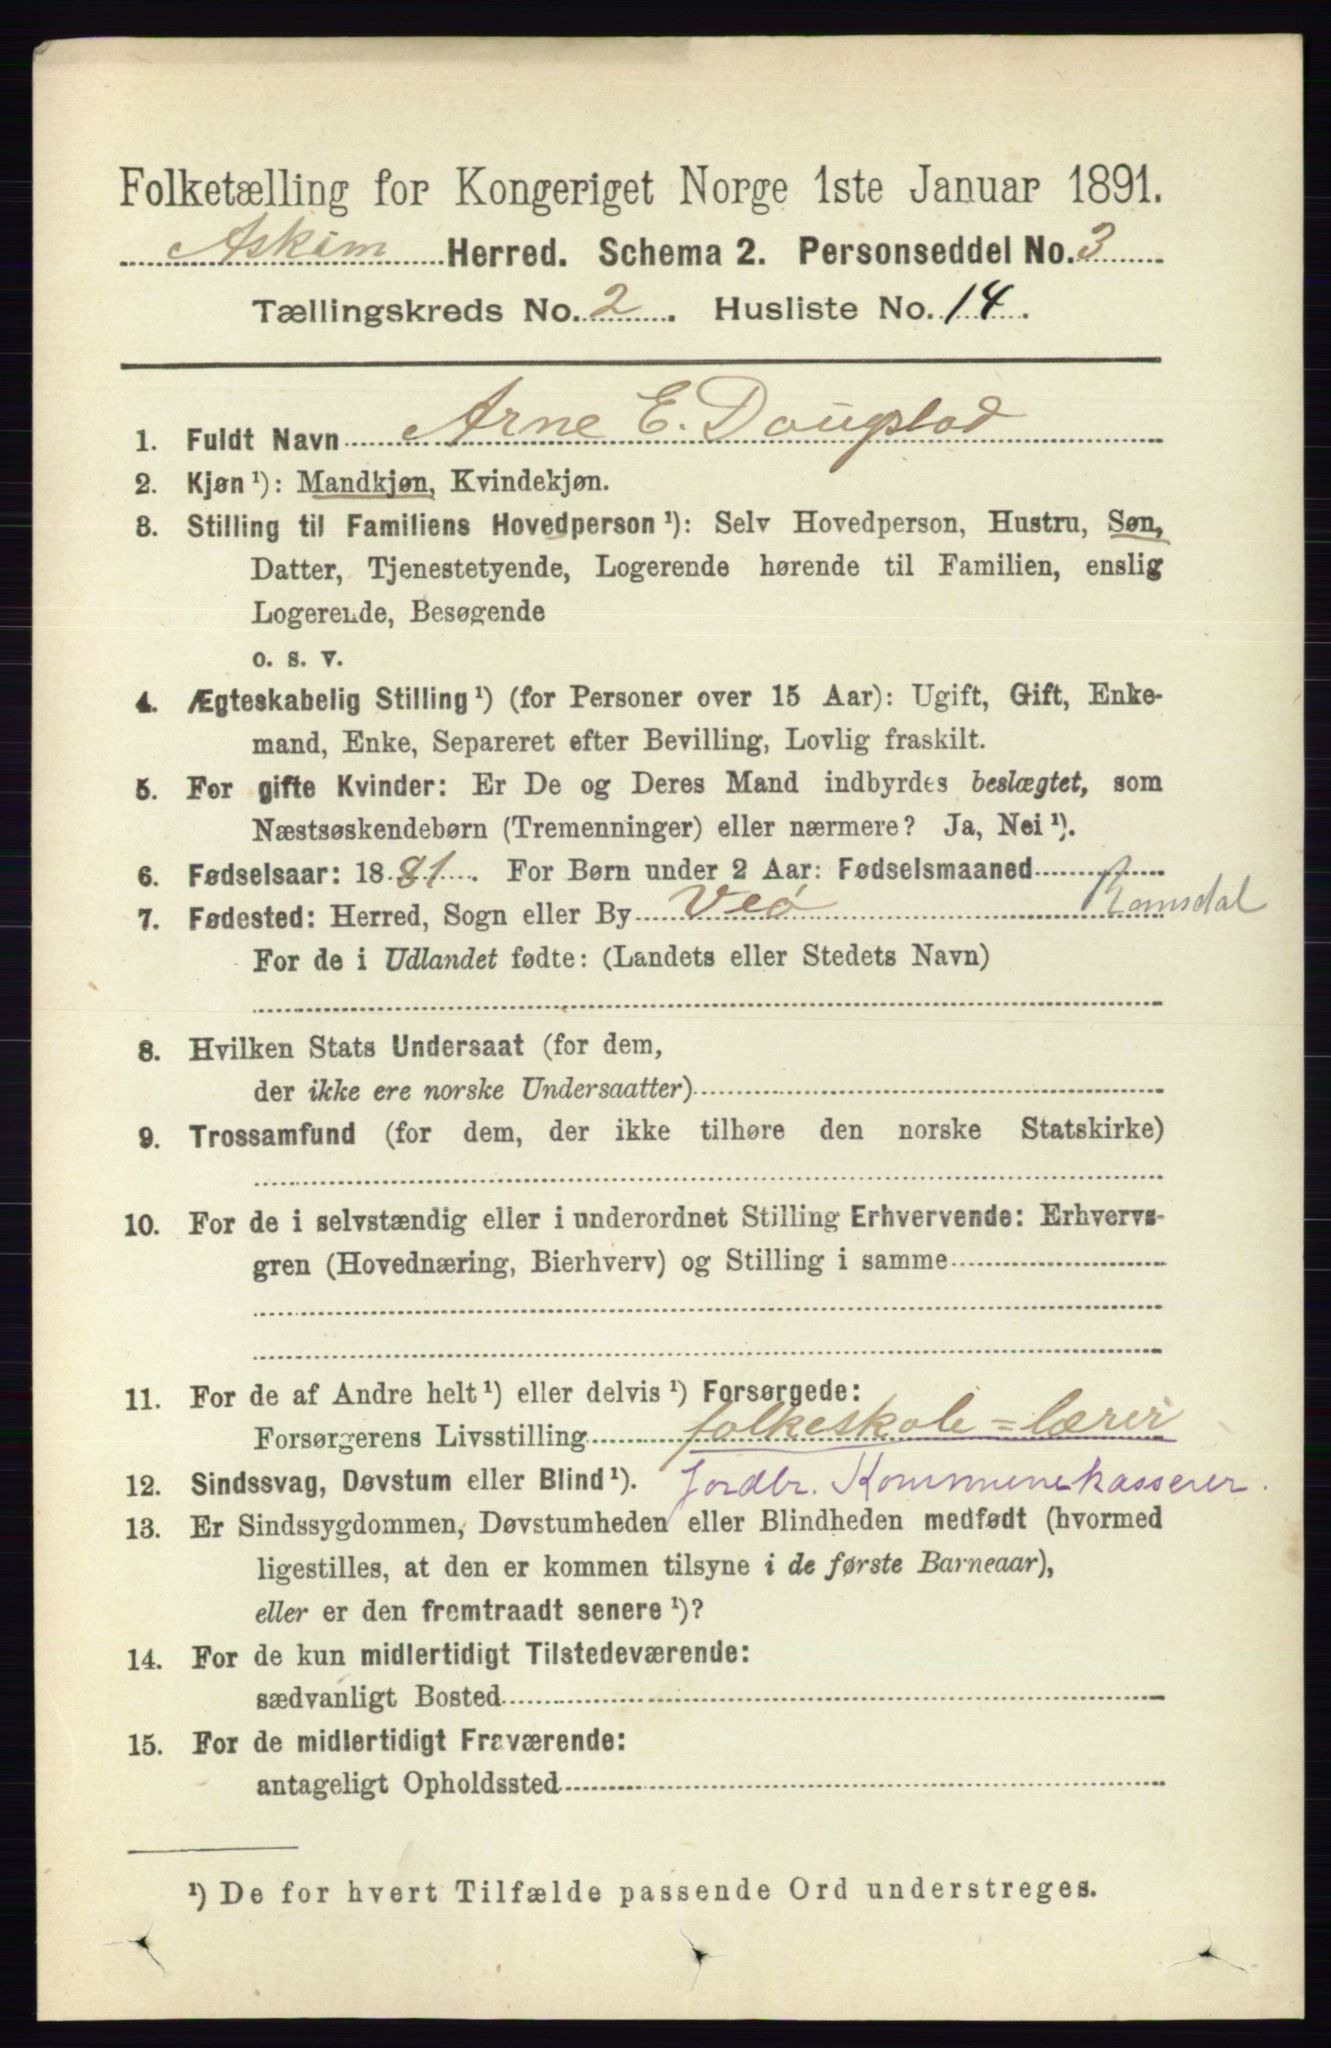 Folketælling for Kongeriget Norge 1ste Januar 1891.
Askim Herred. Schema 2. Personseddel No. 3
Tællingskreds No. 2. Husliste No. 14.
1. Fuldt Navn Arne E. Dougstad
2. Kjøn ¹): Mandkjøn, Kvindekjøn.
3. Stilling til Familiens Hovedperson ¹): Selv Hovedperson, Hustru, Søn,
Datter, Tjenestetyende, Logerende hørende til Familien, enslig
Logerende, Besøgende
o. s. v.
4. Ægteskabelig Stilling ¹) (for Personer over 15 Aar): Ugift, Gift, Enke-
mand, Enke, Separeret efter Bevilling, Lovlig fraskilt.
5. For gifte Kvinder: Er De og Deres Mand indbyrdes beslægtet, som
Næstsøskendebørn (Tremenninger) eller nærmere? Ja, Nei ¹).
6. Fødselsaar: 1881. For Børn under 2 Aar: Fødselsmaaned
7. Fødested: Herred, Sogn eller By Veö Romsdal
For de i Udlandet fødte: (Landets eller Stedets Navn)
8. Hvilken Stats Undersaat (for dem,
der ikke ere norske Undersaatter)
9. Trossamfund (for dem, der ikke tilhøre den norske Statskirke)
10. For de i selvstændig eller i underordnet Stilling Erhvervende: Erhvervs-
gren (Hovednæring, Bierhverv) og Stilling i samme
11. For de af Andre helt ¹) eller delvis ¹) Forsørgede:
Forsørgerens Livsstilling folkeskole=lærer
12. Sindssvag, Døvstum eller Blind ¹). Jordbr. Kommunekasserer.
13. Er Sindssygdommen, Døvstumheden eller Blindheden medfødt (hvormed
ligestilles, at den er kommen tilsyne i de første Barneaar),
eller er den fremtraadt senere ¹)?
14. For de kun midlertidigt Tilstedeværende:
sædvanligt Bosted
15. For de midlertidigt Fraværende:
antageligt Opholdssted
¹) De for hvert Tilfælde passende Ord understreges.